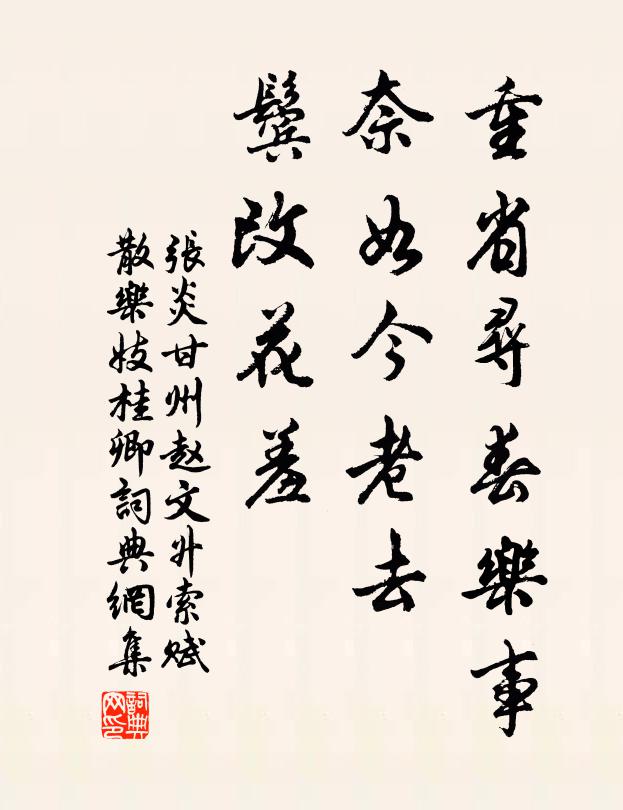 重省尋春樂事
奈如今老去
鬢改花羞
張炎甘州赵文升索賦
散樂妓桂卿詞典網集
詞典网印